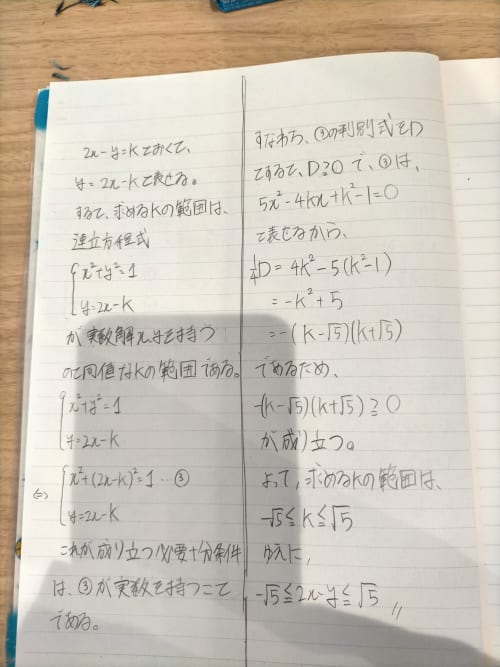 2x-y=kとおくと、
y=2x-kと表せる。
すると、求めるkの範囲は、
連立方程式
{x²+y²=1
{y=2x-k
が実数解x,yを持つ
のと同値なkの範囲である。
{x²+y²=1
{y=2x-k
⇔ {x²+(2x-k)²=1…③
{y=2x-k
これが成り立つ必要十分条件
は、③が実数を持つこと
である。
すなわち、③の判別式をD
とすると、D≧0で、③は、
5x²-4kx+k²-1=0
と表せるから、
1/4D=4k²-5(k²-1)
=-k²+5
=-(k-√5)(k+√5)
であるため、
-(k-√5)(k+√5)≧0
が成り立つ。
よって、求めるkの範囲は、
-√5≦k≦√5
ゆえに、
-√5≦2x-y≦√5 〃